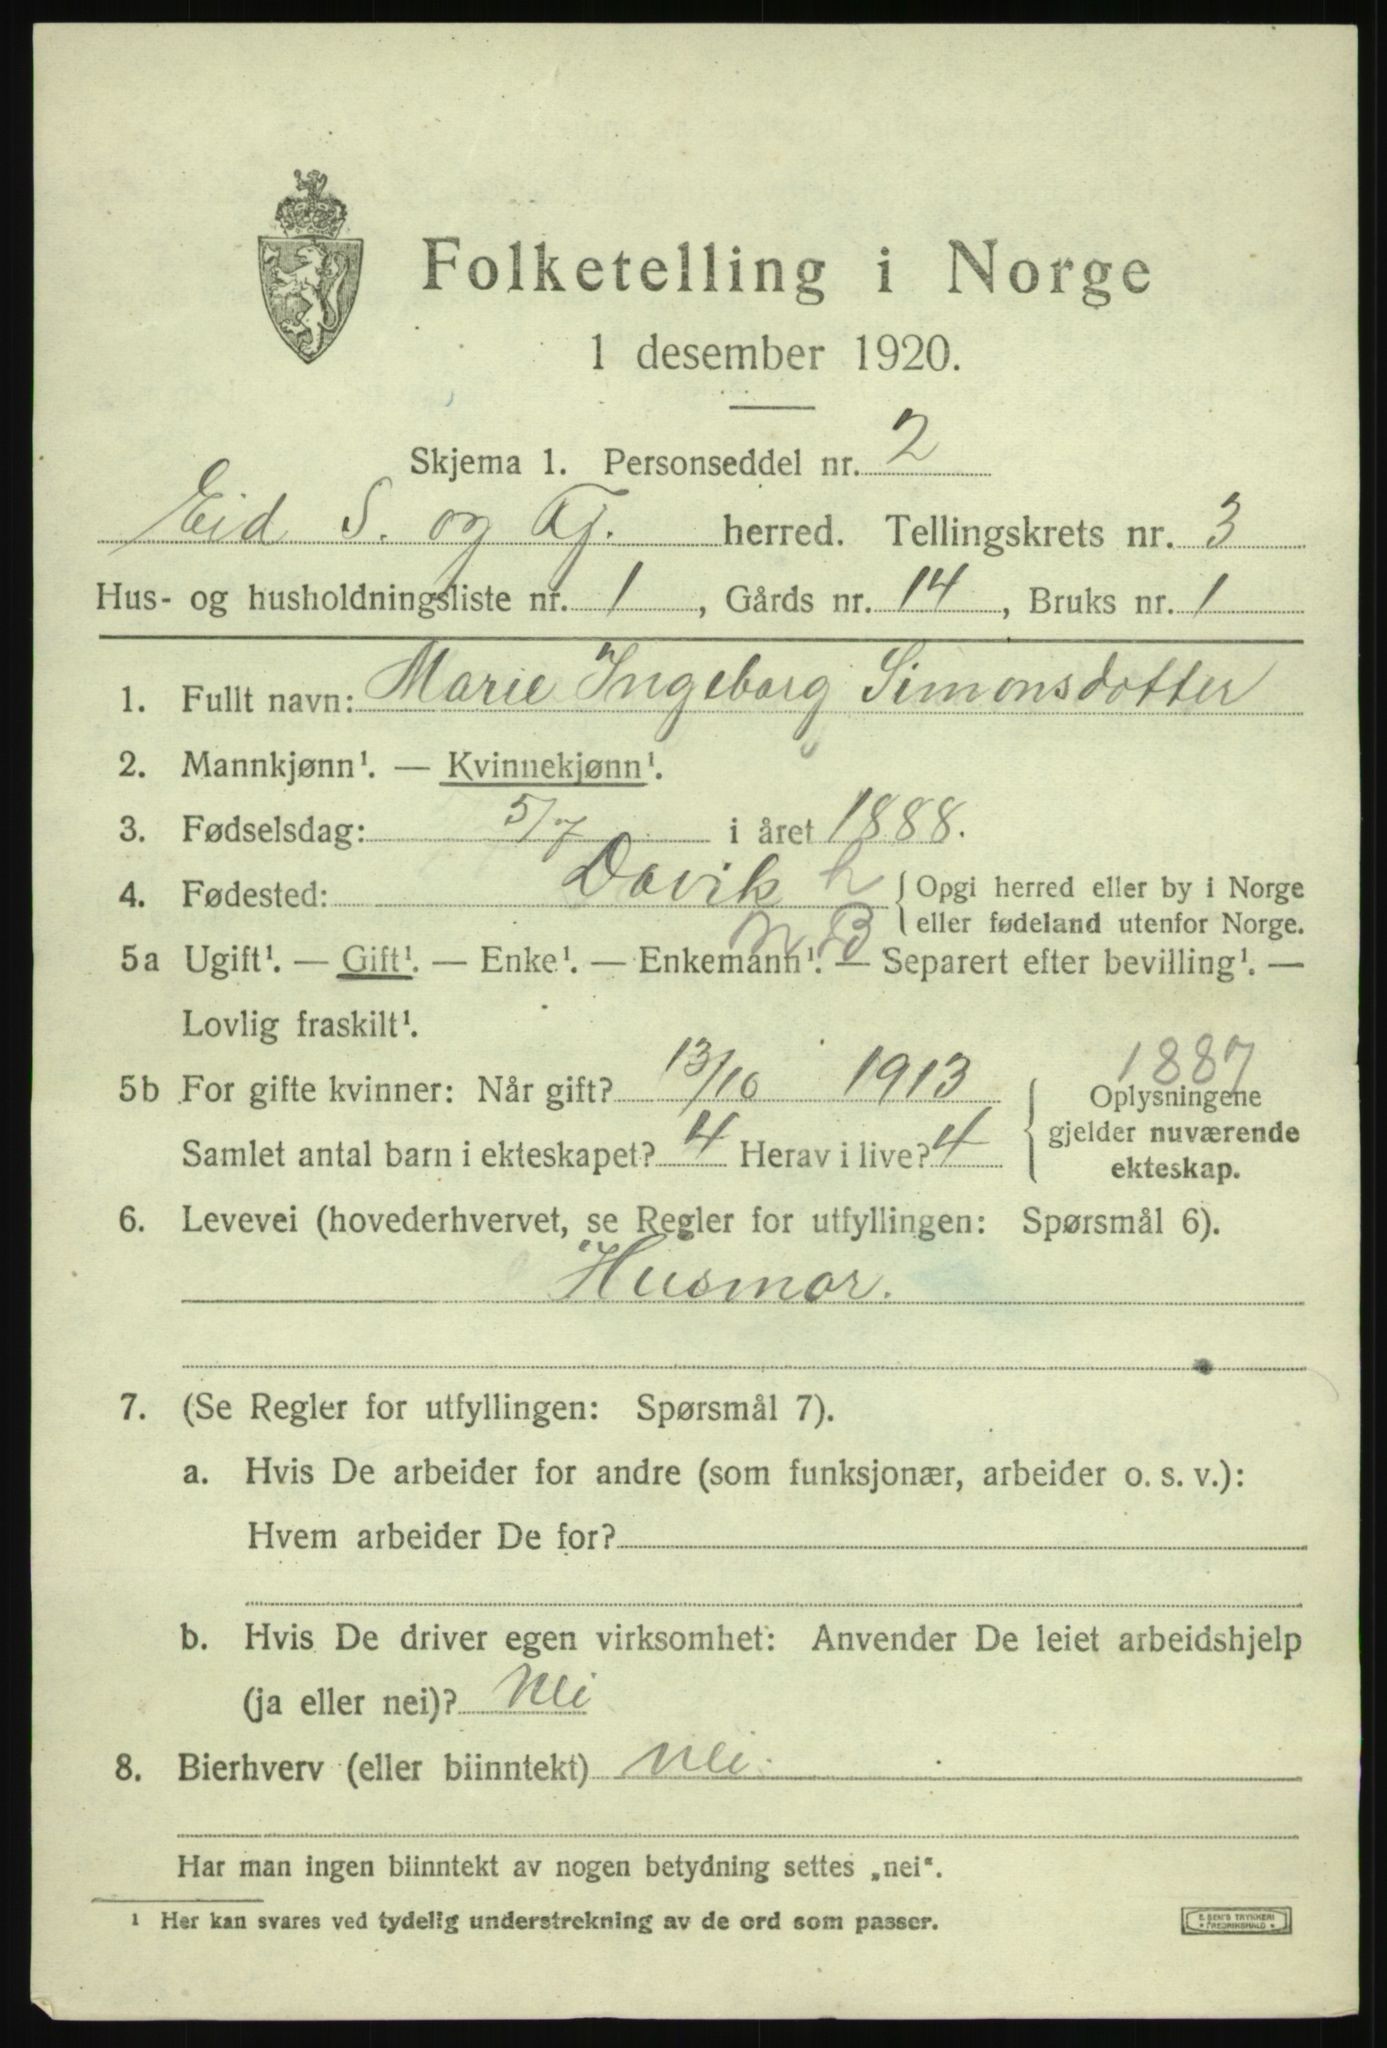 Folketelling i Norge
1 desember 1920.
Skjema 1. Personseddel nr. 2
Eid S. og Fj. herred. Tellingskrets nr. 3
Hus- og husholdningsliste nr. 1, Gårds nr. 14, Bruks nr. 1
1. Fullt navn: Marie Ingeborg Simonsdotter
2. Mannkjønn¹. — Kvinnekjønn¹.
3. Fødselsdag: 5/7 i året 1888.
4. Fødested: Davik h { Opgi herred eller by i Norge
eller fødeland utenfor Norge.
n B
5a Ugift¹. — Gift¹. — Enke¹. — Enkemann¹. — Separert efter bevilling¹. —
Lovlig fraskilt¹.
1887
5b For gifte kvinner: Når gift? 13/10 1913 { Oplysningene
gjelder nuværende
ekteskap.
Samlet antal barn i ekteskapet? 4 Herav i live? 4
6. Levevei (hovederhvervet, se Regler for utfyllingen: Spørsmål 6).
Husmor.
7. (Se Regler for utfyllingen: Spørsmål 7).
a. Hvis De arbeider for andre (som funksjonær, arbeider o. s. v.):
Hvem arbeider De for?
b. Hvis De driver egen virksomhet: Anvender De leiet arbeidshjelp
(ja eller nei)? Nei
8. Bierhverv (eller biinntekt) Nei.
Har man ingen biinntekt av nogen betydning settes „nei“.
¹ Her kan svares ved tydelig understrekning av de ord som passer.
E. SEM'S TRYKKERI
* FREDRIKSHALD *